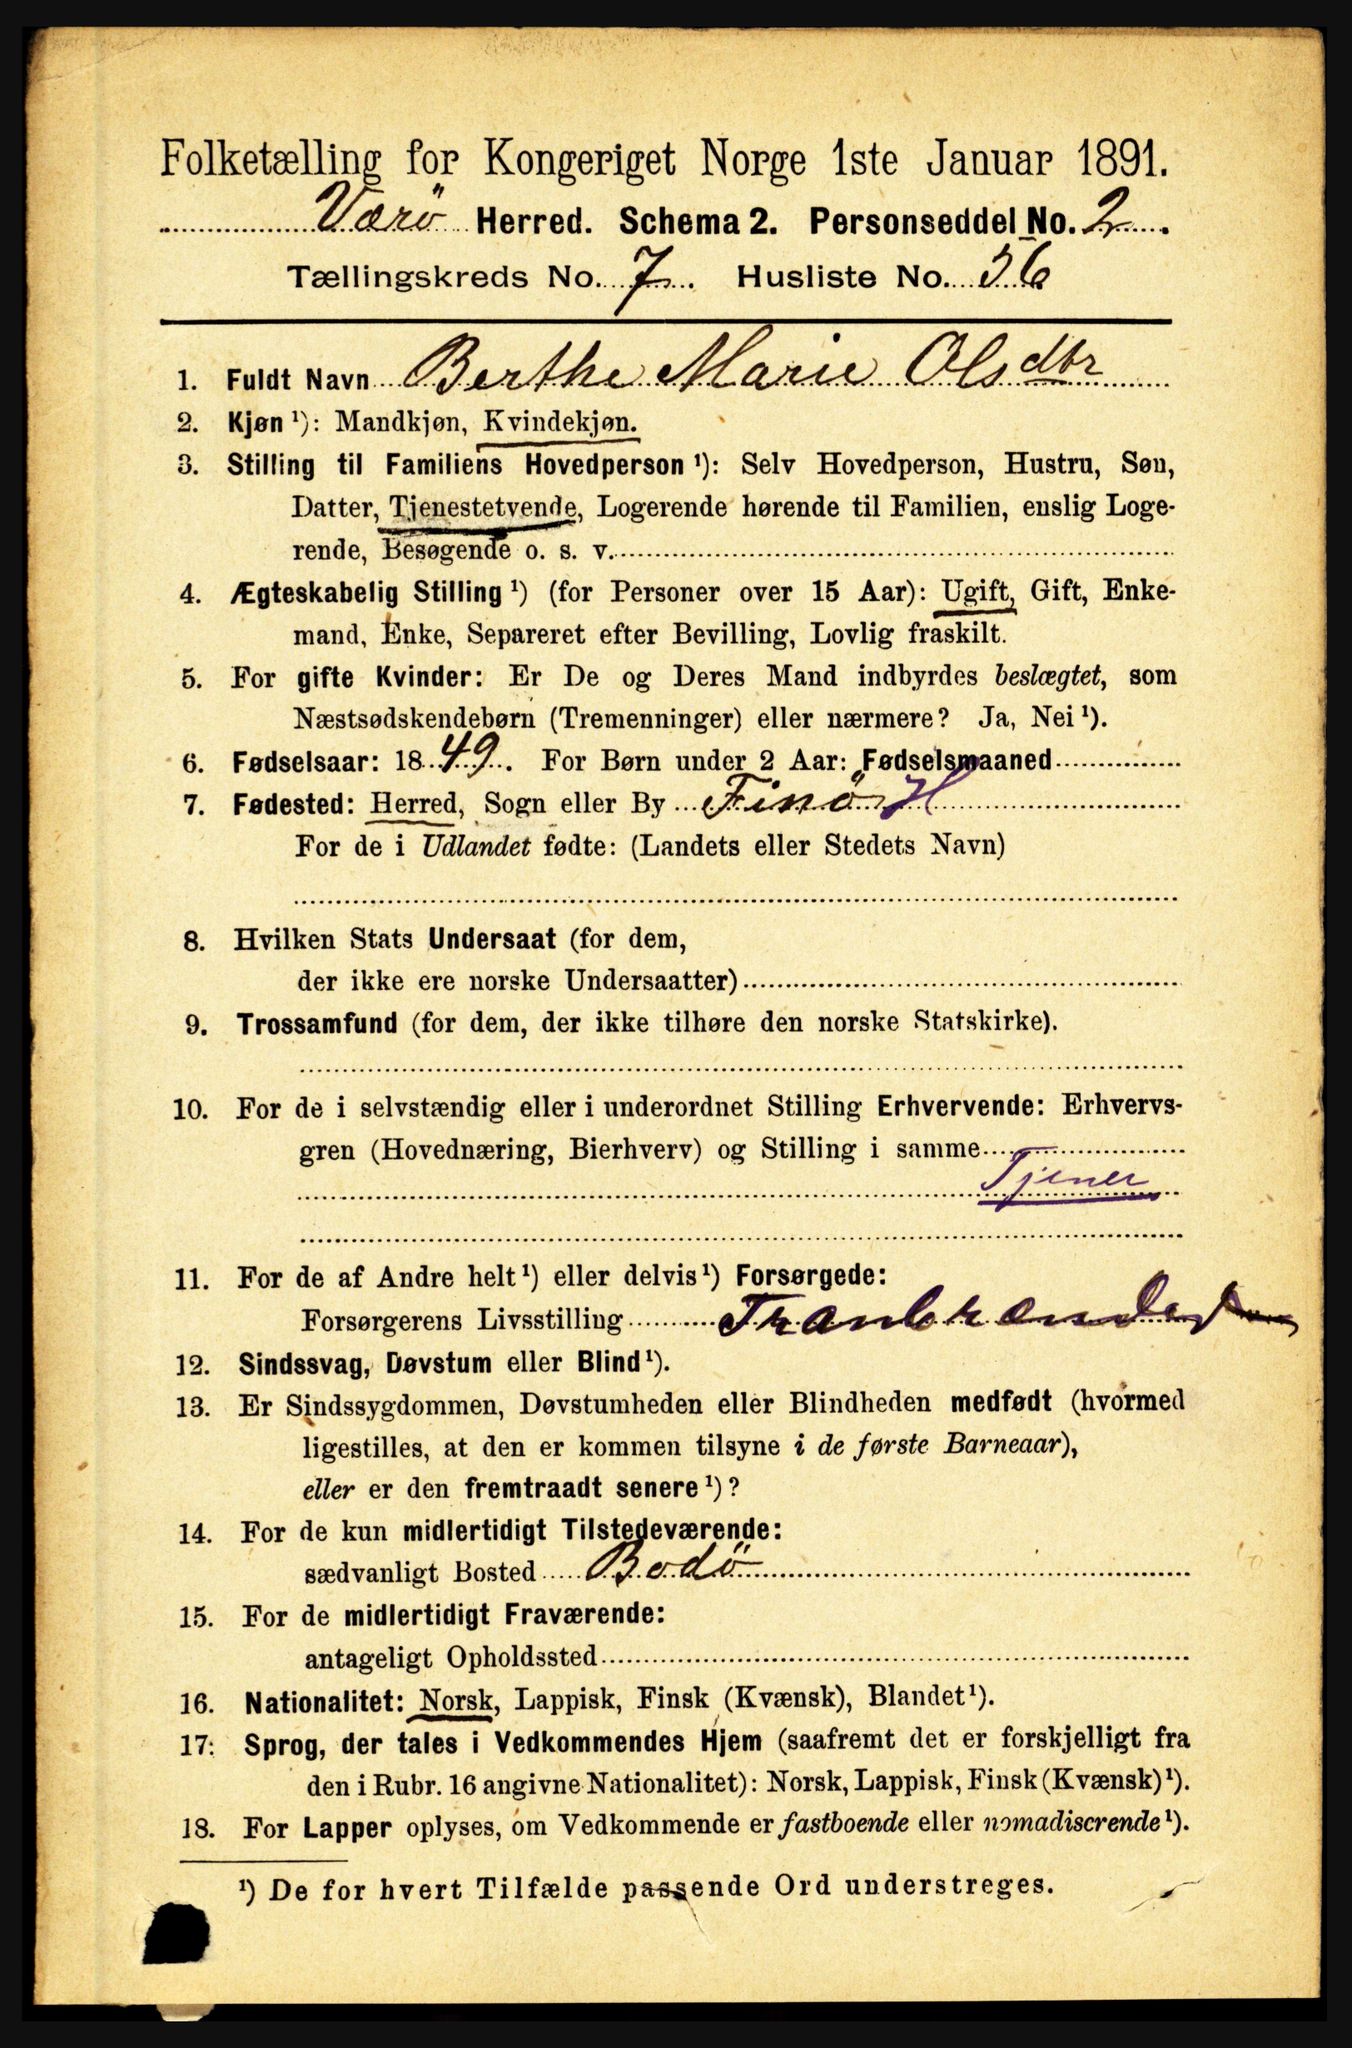 Folketælling for Kongeriget Norge 1ste Januar 1891.
Værö Herred. Schema 2. Personseddel No. 2
Tællingskreds No. 7 Husliste No. 56
1. Fuldt Navn Berthe Marie Olsdtr
2. Kjøn ¹): Mandkjøn, Kvindekjøn.
3. Stilling til Familiens Hovedperson ¹): Selv Hovedperson, Hustru, Søn,
Datter, Tjenestetyende, Logerende hørende til Familien, enslig Loge-
rende, Besøgende o. s. v.
4. Ægteskabelig Stilling ¹) (for Personer over 15 Aar): Ugift, Gift, Enke-
mand, Enke, Separeret efter Bevilling, Lovlig fraskilt.
5. For gifte Kvinder: Er De og Deres Mand indbyrdes beslægtet, som
Næstsødskendebørn (Tremenninger) eller nærmere? Ja, Nei ¹).
6. Fødselsaar: 1849. For Børn under 2 Aar: Fødselsmaaned
7. Fødested: Herred, Sogn eller By Finö H
For de i Udlandet fødte: (Landets eller Stedets Navn)
8. Hvilken Stats Undersaat (for dem,
der ikke ere norske Undersaatter)
9. Trossamfund (for dem, der ikke tilhøre den norske Statskirke).
10. For de i selvstændig eller i underordnet Stilling Erhvervende: Erhvervs-
gren (Hovednæring, Bierhverv) og Stilling i samme
Tjener
11. For de af Andre helt ¹) eller delvis ¹) Forsørgede:
Forsørgerens Livsstilling Tranbrænder
12. Sindssvag, Døvstum eller Blind ¹).
13. Er Sindssygdommen, Døvstumheden eller Blindheden medfødt (hvormed
ligestilles, at den er kommen tilsyne i de første Barneaar),
eller er den fremtraadt senere ¹)?
14. For de kun midlertidigt Tilstedeværende:
sædvanligt Bosted Bodö
15. For de midlertidigt Fraværende:
antageligt Opholdssted
16. Nationalitet: Norsk, Lappisk, Finsk (Kvænsk), Blandet ¹).
17: Sprog, der tales i Vedkommendes Hjem (saafremt det er forskjelligt fra
den i Rubr. 16 angivne Nationalitet): Norsk, Lappisk, Finsk (Kvænsk) ¹).
18. For Lapper oplyses, om Vedkommende er fastboende eller nomadiserende ¹).
¹) De for hvert Tilfælde passende Ord understreges.